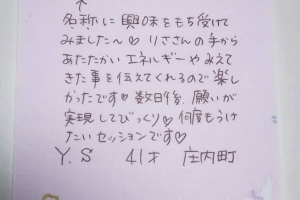 ↑
名称に興味をもち受けて
みました〜♡りささんの手から
あたたかいエネルギーやみえて
きた事を伝えてくれるので楽し
かったです♡数日後、願いが
実現してびっくり♡何度もうけ
たいセッションです♡
Y.S 41才 庄内町